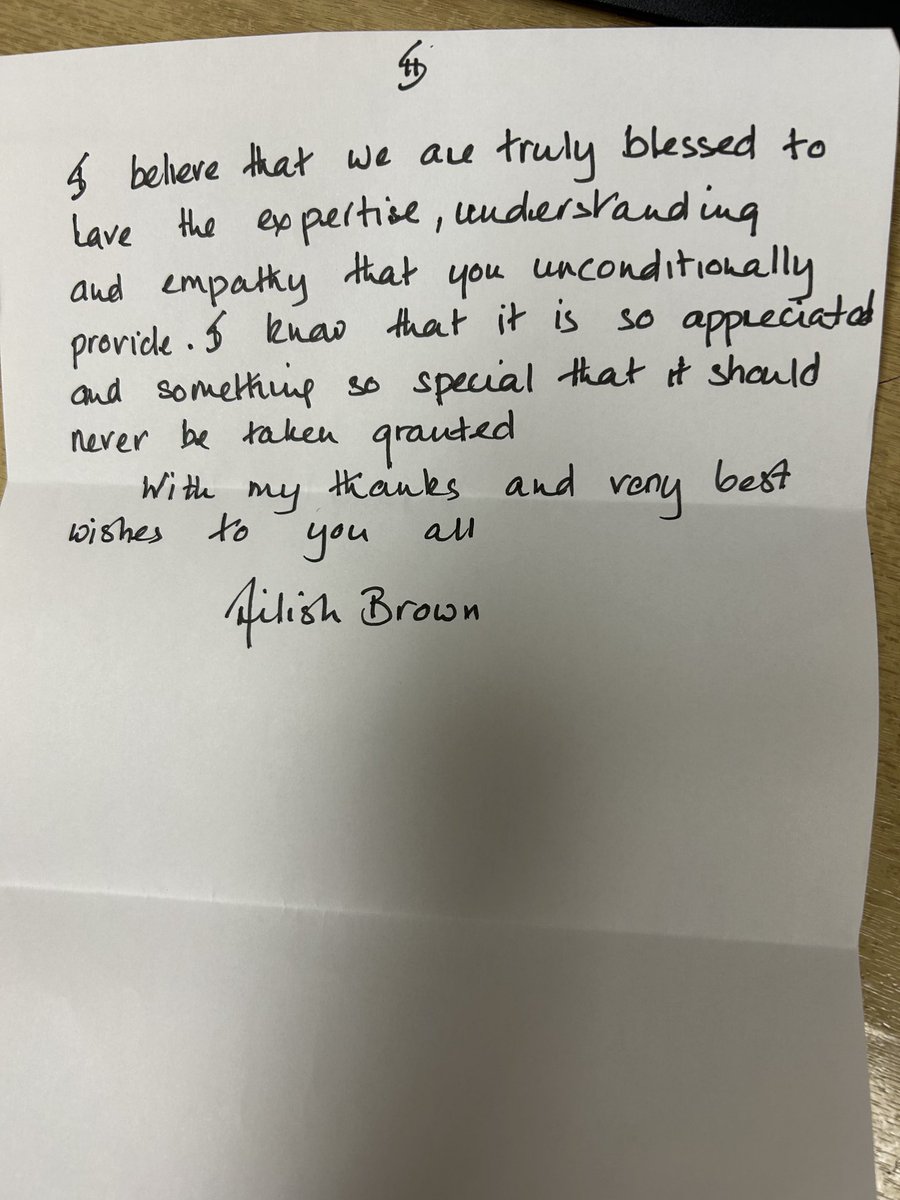 I believe that we are truly blessed to
have the expertise, understanding
and empathy that you unconditionally
provide. I know that it is so appreciated
and something so special that it should
never be taken granted
With my thanks and very best
wishes to you all
Ailish Brown